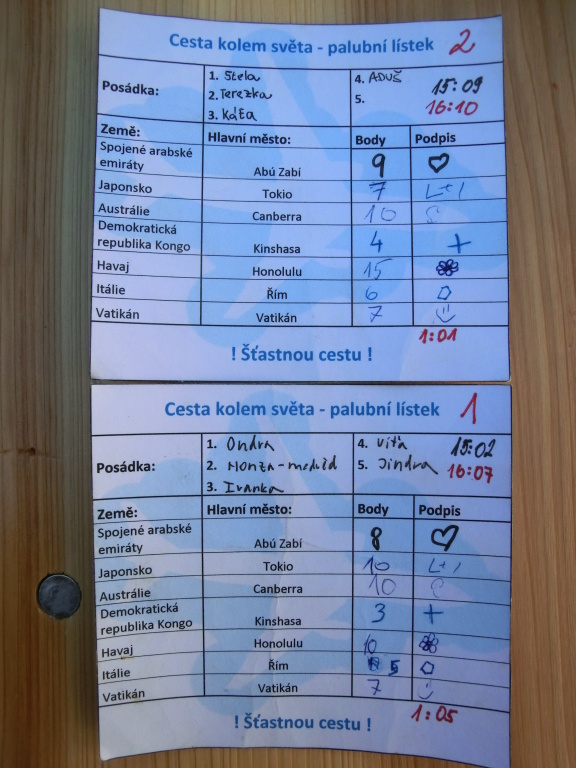 Cesta kolem světa - palubní lístek 2
Posádka: 1. Stela 4. ADUŠ 15:09
2. Terezka 5. 16:10
3. Káťa
Země: Hlavní město: Body Podpis
Spojené arabské
emiráty Abú Zabí 9
Japonsko Tokio 7
Austrálie Canberra 10
Demokratická
republika Kongo Kinshasa 4
Havaj Honolulu 15
Itálie Řím 6
Vatikán Vatikán 7
1:01
! Šťastnou cestu !
Cesta kolem světa - palubní lístek 1
Posádka: 1. Ondra 4. Víťa 15:02
2. Honza-medvěd 5. Jindra 16:07
3. Ivanka
Země: Hlavní město: Body Podpis
Spojené arabské
emiráty Abú Zabí 8
Japonsko Tokio 10
Austrálie Canberra 10
Demokratická
republika Kongo Kinshasa 3
Havaj Honolulu 10
Itálie Řím 5
Vatikán Vatikán 7
1:05
! Šťastnou cestu !